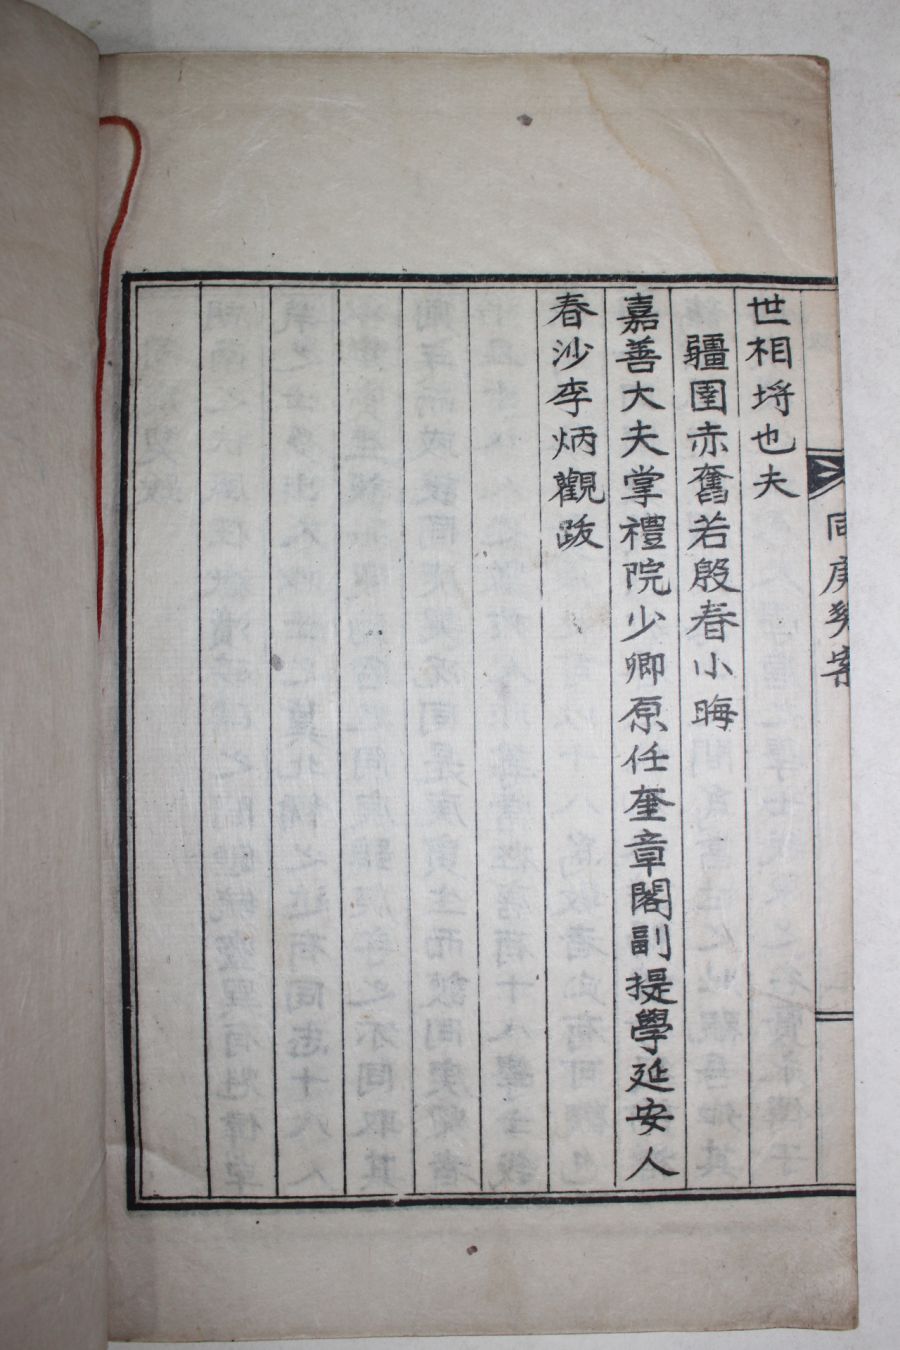 世相埒也夫
疆圉赤奮若殷春小晦
嘉善大夫掌禮院少卿原任奎章閣副提學延安人
春沙李炳觀跋
同庚契案